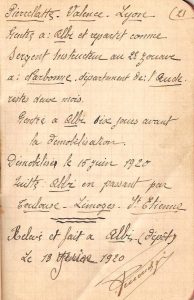 Pierrelatte. Valence. Lyon (21
Rentre a: Albi et reparret comme
Sergent Instructeur au 2e zouave
a: Narbonne, departement de: l'Aude
reste deux mois.
Rentre a Albi dix jours avant
la demobilisation.
Demobilisé le 15 juin 1920
Quitte Albi en passant par
Toulouse - Limoges St Etienne
Relevé et fait a Albi (depôt)
Le 13 1920